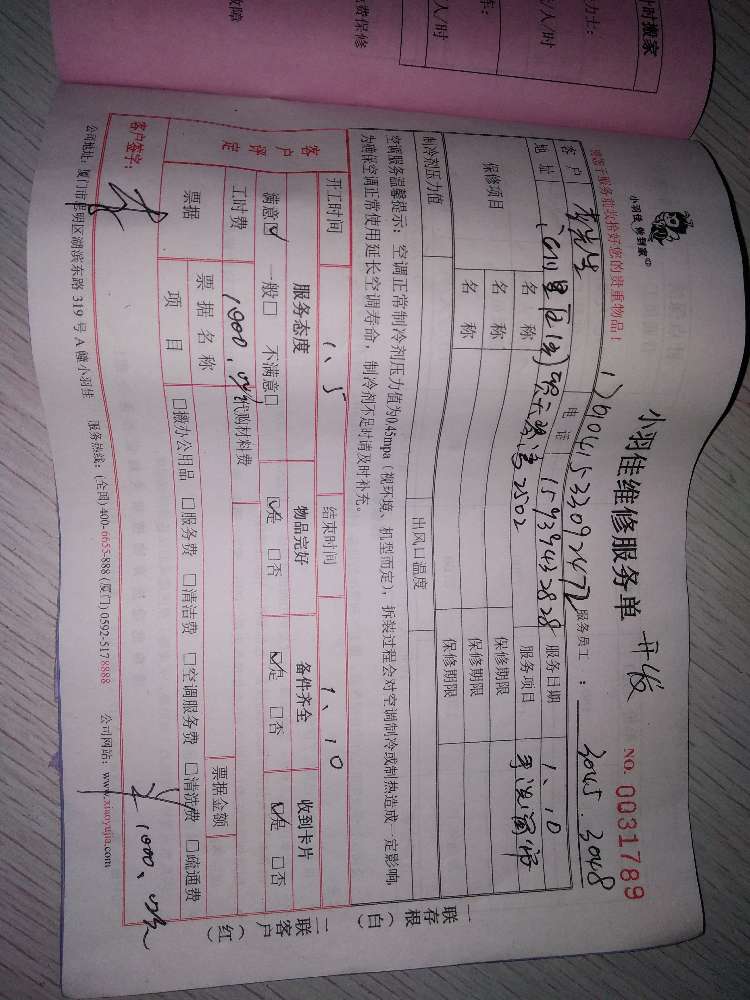 小羽佳 帮到家
请您于服务前收拾好您的贵重物品！
小羽佳维修服务单
开发
NO. 0031789
179041533092472
服务员工：3045.3048
客户 李先生 电话 15939432828 服务日期 1、10
地址 2502 服务项目
保修项目 名称 保修期限
名称 保修期限
名称 保修期限
制冷剂压力值 出风口温度
空调服务温馨提示：空调正常制冷剂压力值为0.45mpa（视环境、机型而定），拆装过程会对空调制冷或制热造成一定影响，
为确保空调正常使用延长空调寿命，制冷剂不足时请及时补充。
开工时间 1、5 结束时间 1、10
客户评定
服务态度 物品完好 备件齐全 收到卡片
满意☑ 一般□ 不满意□ ☑是 □否 ☑是 □否 ☑是 □否
工时费 1000、 代购材料费
票据 票据名称 票据金额
项目 □搬办公用品 □服务费 □清洁费 □空调服务费 □清洗费 □疏通费
客户签字： 李 1000、
公司地址：厦门市思明区湖滨东路 319 号 A 幢小羽佳 服务热线：(全国)400-6655-888 (厦门)0592-5178888 公司网站：www.xiaoyujia.com
一联存根（白）
二联客户（红）
时搬家
力士：
人/时
车：
人/时
费保修
故障